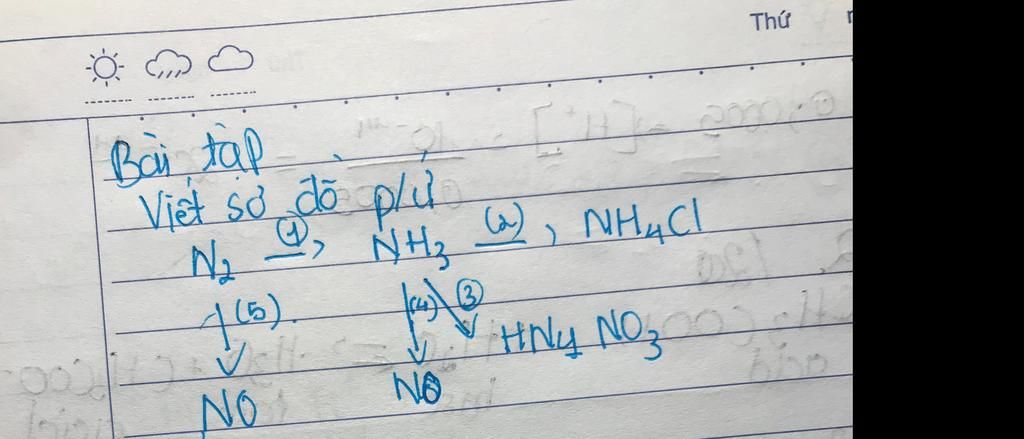 Thứ
Bài tập
Viết sơ đồ p/ứ
N2 (1)→ NH3 (2)→ NH4Cl
(5) (4) (3)
HN4 NO3
NO NO